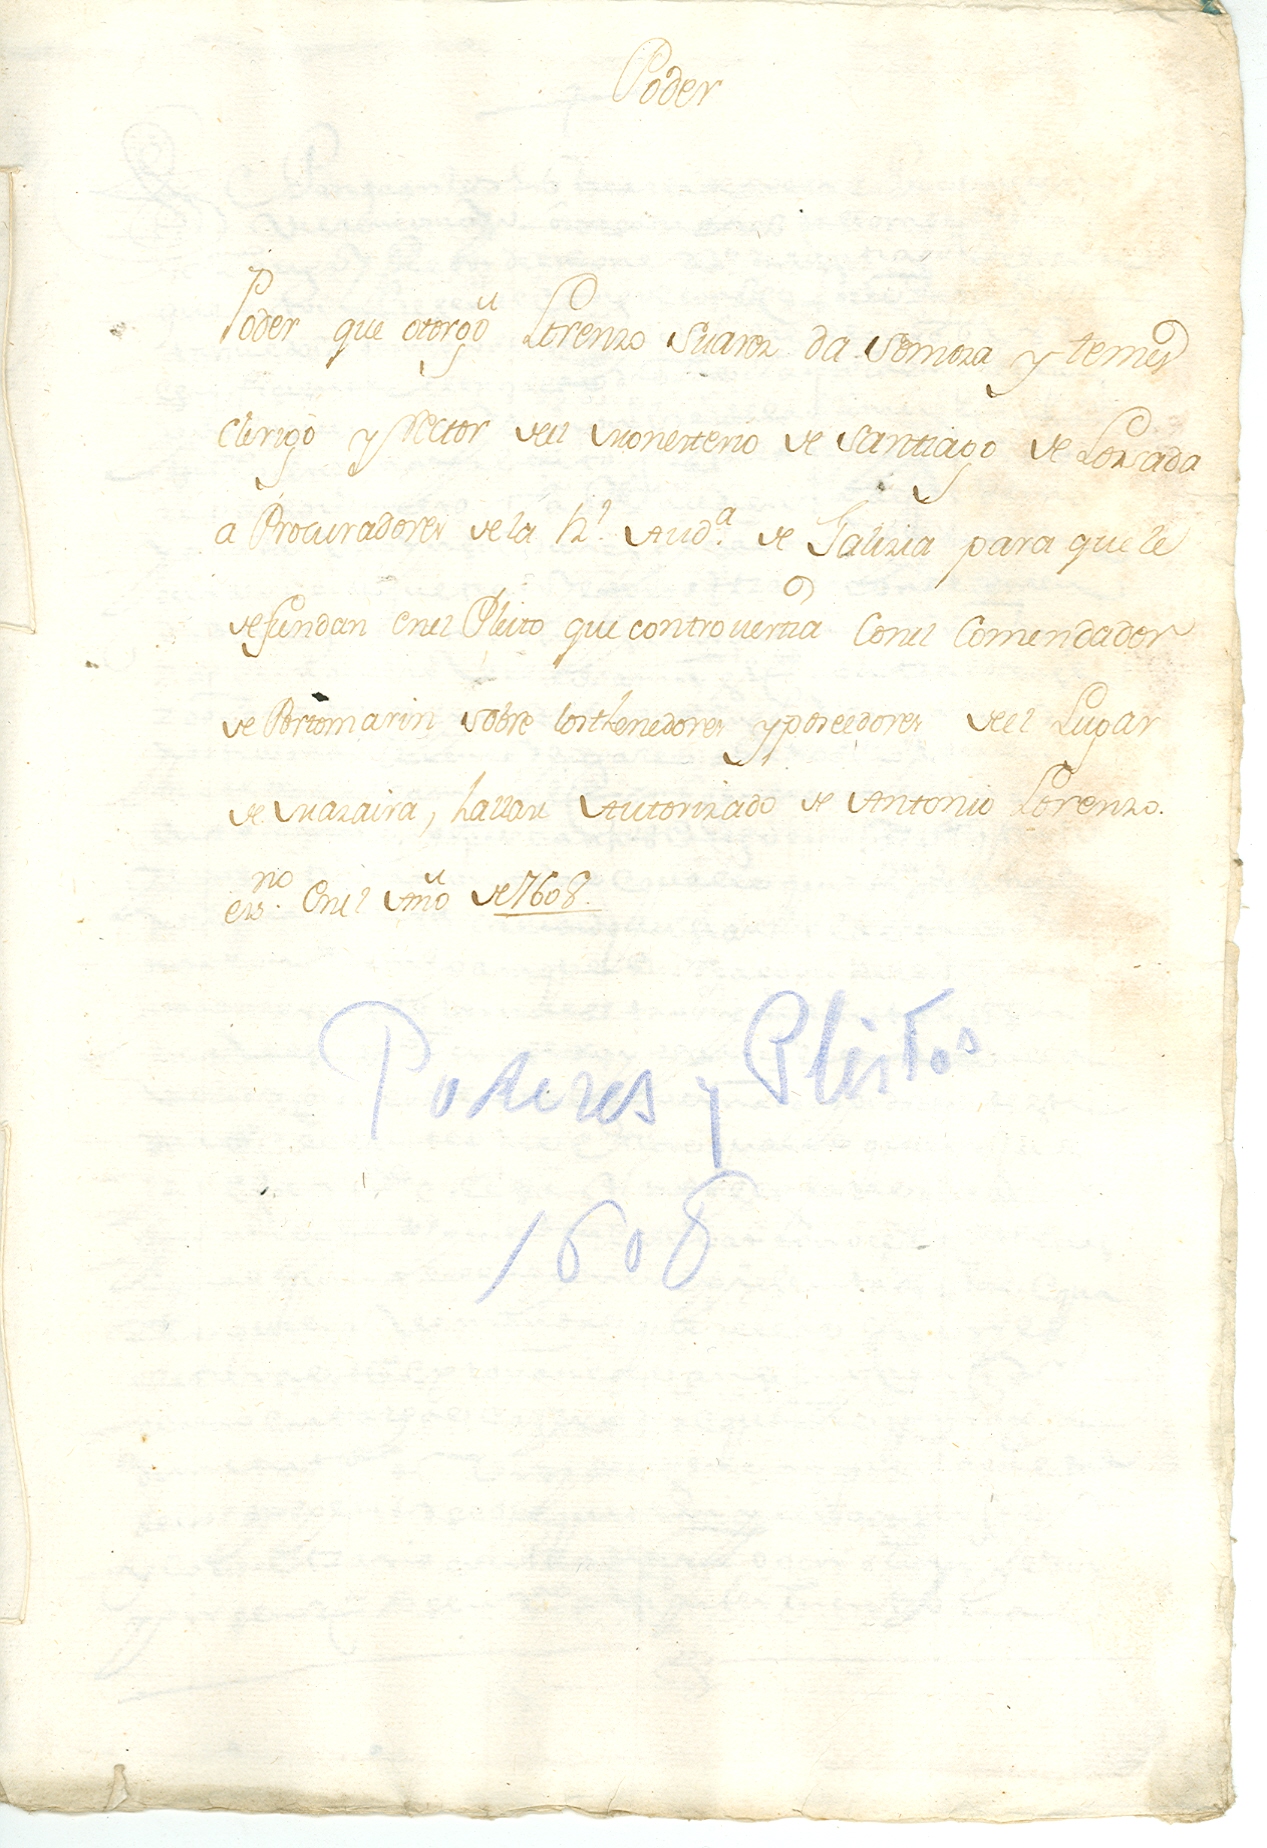 Poder
Poder que otorgo Lorenzo Suarez da Somoza y temes
Clerigo y Rector del Monesterio de Santiago de Lozada
a Procuradores de la Rl. Auda. de Galizia para que le
defiendan en el Pleito que controvertia con el Comendador
de Portomarin sobre los thenedores y poseedores del Lugar
de Mazaira, hallase Autorizado de Antonio Lorenzo.
essno. en el Año de 1608.
Poderes y Pleitos
1608